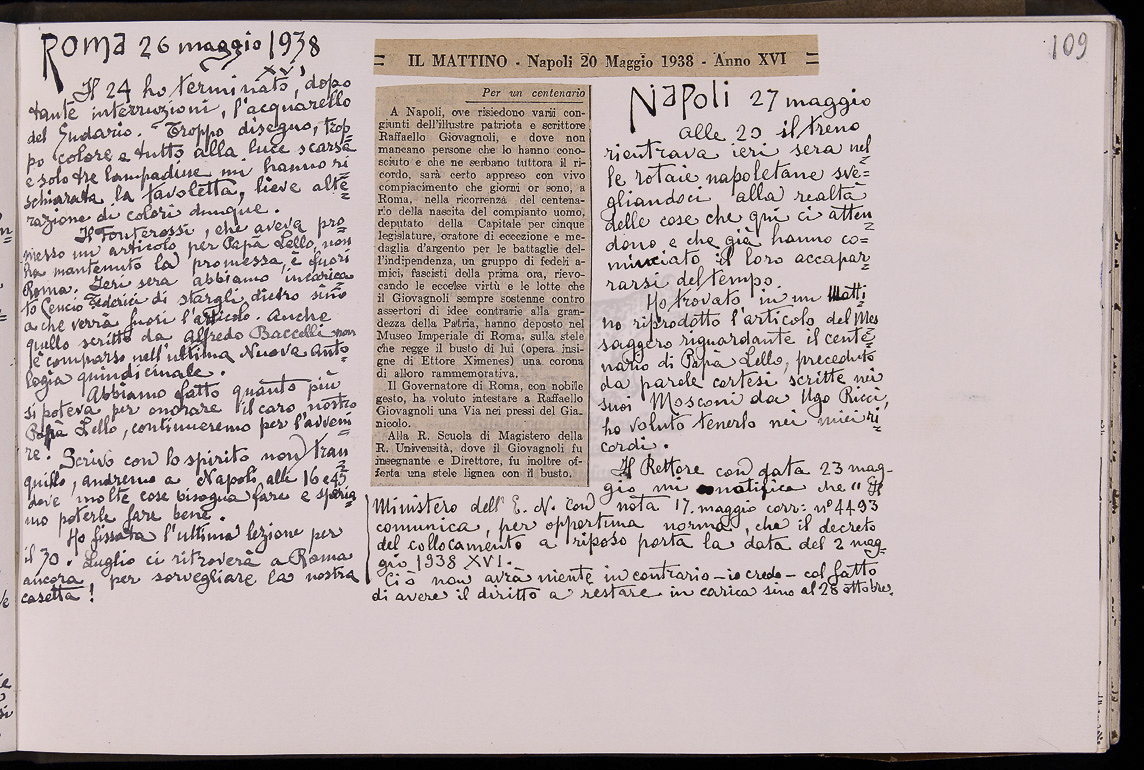 109
Roma 26 maggio 1938
XVI
Il 24 ho terminato, dopo
tante interruzioni, l'acquarello
del Sudario. - Troppo disegno, trop=
po colore e tutto alla luce scarsa
e solo tre lampadine mi hanno ri
schiarata la tavoletta, lieve alte=
razione di colori dunque.
Il Fonterossi, che aveva pro
messo un articolo per Papà Lello, non
ha mantenuto la promessa, è fuori
Roma. Ieri sera abbiamo incarica
to Cencio Federici di stargli dietro sino
a che verrà fuori l'articolo. Anche
quello scritto da Alfredo Baccelli non
è comparso nell'ultima Nuova Anto=
logia quindicinale.
Abbiamo fatto quanto più
si poteva per onorare il caro nostro
Papà Lello, continueremo per l'avveni=
re.
Scrivo con lo spirito non tran
quillo, andremo a Napoli alle 16 e 45
dove molte cose bisogna fare e speria
mo poterle fare bene.
Ho fissata l'ultima lezione per
il 30. Luglio ci ritroverà a Roma
ancora per sorvegliare la nostra
casetta!
= IL MATTINO - Napoli 20 Maggio 1938 - Anno XVI =
Per un centenario
A Napoli, ove risiedono varii con-
giunti dell'illustre patriota e scrittore
Raffaello Giovagnoli, e dove non
mancano persone che lo hanno cono-
sciuto e che ne serbano tuttora il ri-
cordo, sarà certo appreso con vivo
compiacimento che giorni or sono, a
Roma, nella ricorrenza del centena-
rio della nascita del compianto uomo,
deputato della Capitale per cinque
legislature, oratore di eccezione e me-
daglia d'argento per le battaglie del-
l'indipendenza, un gruppo di fedeli a-
mici, fascisti della prima ora, rievo-
cando le eccelse virtù e le lotte che
il Giovagnoli sempre sostenne contro
assertori di idee contrarie alla gran-
dezza della Patria, hanno deposto nel
Museo Imperiale di Roma, sulla stele
che regge il busto di lui (opera insi-
gne di Ettore Ximenes) una corona
di alloro rammemorativa.
Il Governatore di Roma, con nobile
gesto, ha voluto intestare a Raffaello
Giovagnoli una Via nei pressi del Gia-
nicolo.
Alla R. Scuola di Magistero della
R. Università, dove il Giovagnoli fu
insegnante e Direttore, fu inoltre of-
ferta una stele lignea con il busto.
Napoli 27 maggio
alle 20 il treno
rientrava ieri sera nel
le rotaie napoletane sve=
gliandoci alla realtà
delle cose che qui ci atten
dono e che già hanno co=
minciato il loro accapar=
rarsi del tempo.
Ho trovato in un Matti
no riprodotto l'articolo del Mes
saggero riguardante il cente=
nario di Papà Lello, preceduto
da parole cortesi scritte nei
suoi Mosconi da Ugo Ricci,
ho voluto tenerlo nei miei ri=
cordi.
Il Rettore con data 23 mag-
gio mi notifica che " Il
Ministero dell' E. N. con nota 17. maggio corr: n° 4493
comunica, per opportuna norma, che il decreto
del collocamento a riposo porta la data del 2 mag-
gio 1938 XVI.
Ciò non avrà niente in contrario - io credo - col fatto
di avere il diritto a restare in carica sino al 28 ottobre.